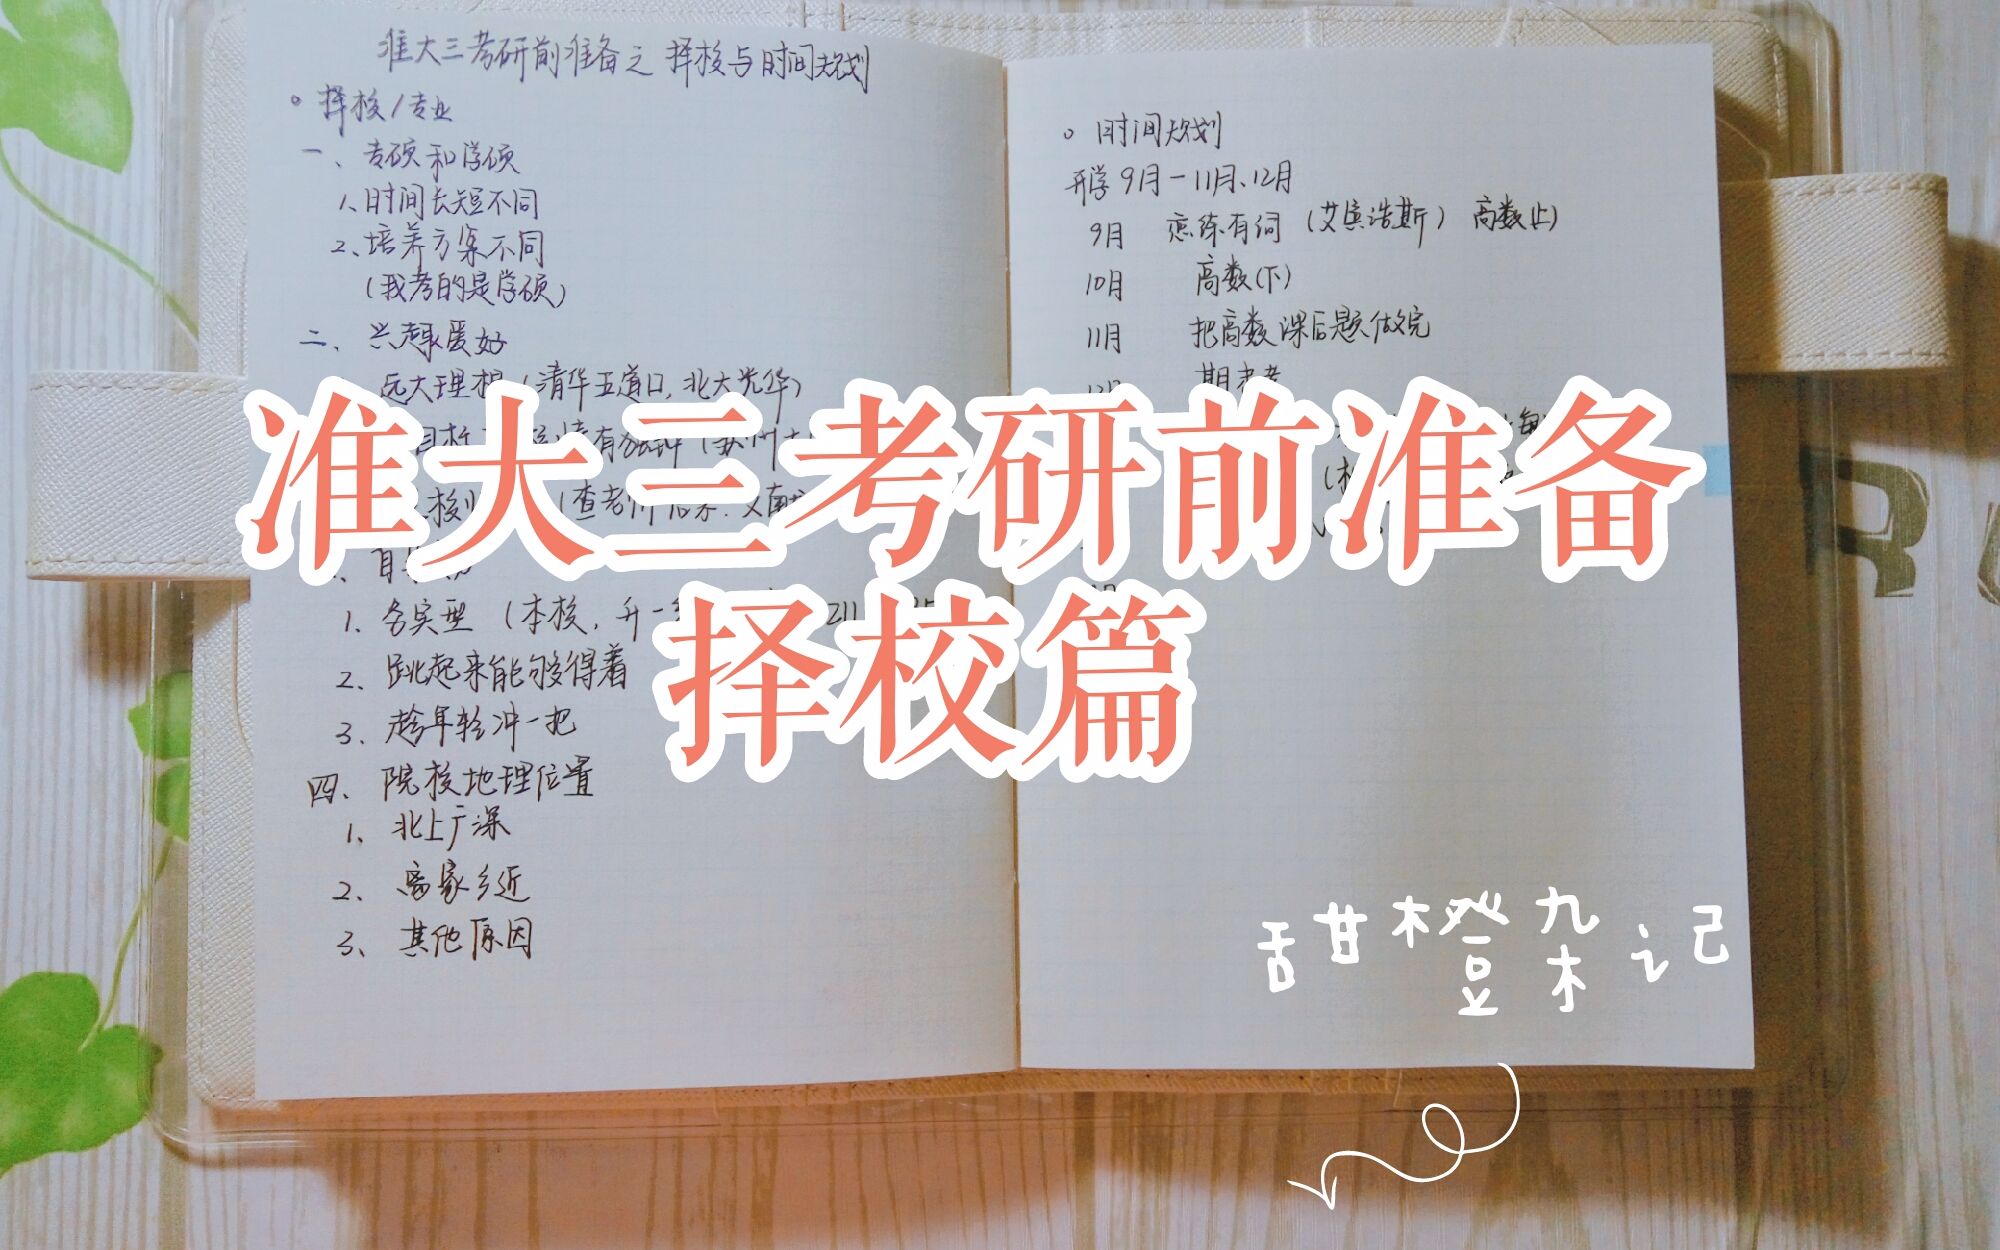 准大三考研前准备之 择校与时间规划
。择校/专业
一、专硕和学硕
1、时间长短不同
2、培养方案不同
(我考的是学硕)
二、兴趣爱好
远大理想(清华五道口,北大光华)
有独钟
(查老师
1、务实型 (本校,升一 211
2、跳起来能够得着
3、趁年轻冲一把
四、院校地理位置
1、北上广深
2、离家乡近
3、其他原因
。时间规划
开学9月-11月、12月
9月 恋练有词(艾宾浩斯) 高数(上)
10月 高数(下)
11月 把高数课后题做完
12月 期末考
准大三考研前准备
择校篇
甜橙杂记